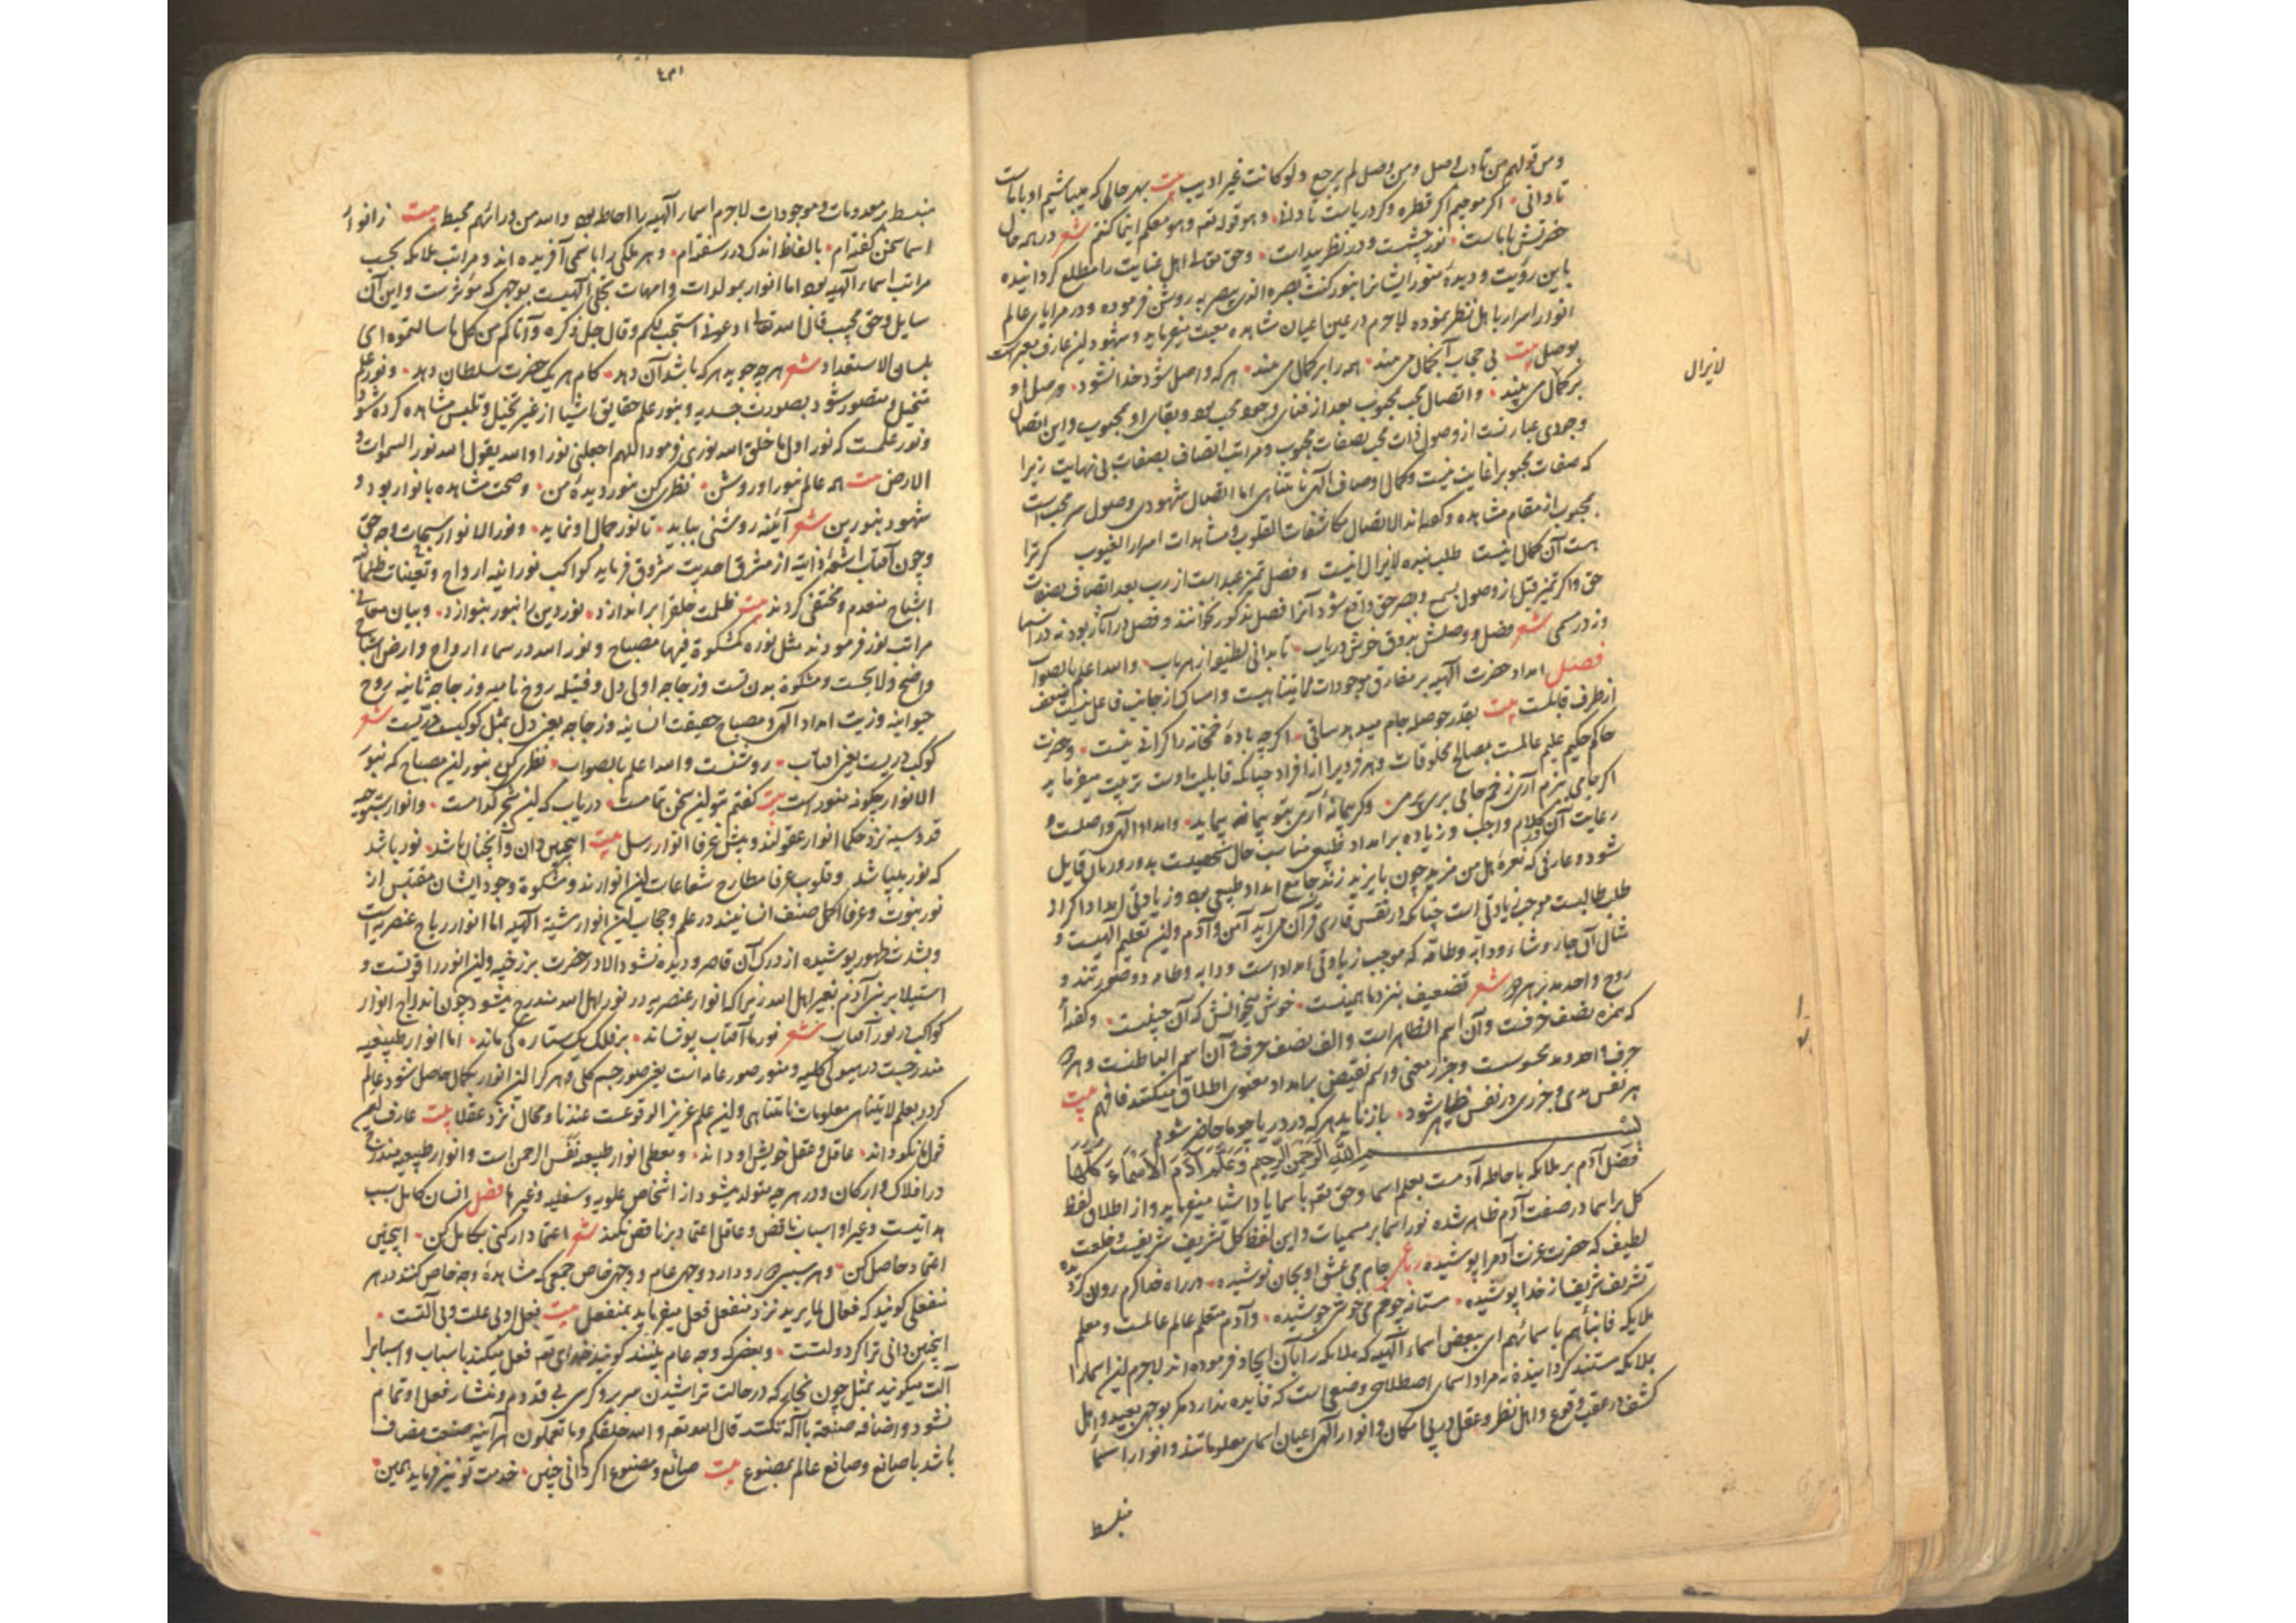 ومن قولهم من تادب وصل ومن وصل لم يرجع ولو كانت غير اديب بيت بهر حالی که میباشیم او با ماست
تا دانی اکر موجیم اکر قطره وکر دریاست تا دانی وهو قوله تعه وهو معكم اينما كنتم شعر در همه حال
حضرتش باماست نور چشمست ودر نظر پیداست وحق تعالی اهل عنایت را مطلع کردانیده
باین رؤیت ودیدهٔ منور ایشانرا بنور كنت بصره الذی يبصر به روشن فرموده ودر مرایای عالم
انوار اسرار با اهل نظر نموده لاجرم در عین اعیان مشاهده معیت میفرماید وشهود این عارف معبر است
بوصل بیت بی حجاب آنجمال می بیند همه را بر کمال می بیند هر که واصل شود خدا نشود وصل او
بر کمال می بیند واتصال محب بمحبوب بعد از فنای وجود محب بود وبقای او بمحبوب واین اتصال
وجودی عبارتست از وصول ذات محب بصفات محبوب ومراتب اتصاف بصفات بی نهایت زیرا
که صفات محبوبرا غایت نیست وکمال اوصاف الهی نامتناهی اما اتصال شهودی وصول سر محب است
بمحبوب از مقام مشاهده وکفته اند الاتصال مکاشفات القلوب ومشاهدات اسرار الغیوب کر ترا
هست آن کمال اینست طلب بنده لایزال اینست وفصل تمیز عبد است از رب بعد اتصاف بصفات
حق واکر تمیز قبل از وصول بسمع وبصر حق واقع شود آنرا فصل مذکور نخوانند وفصل در آثار بود نه در اسما
شعر فصل ووصلش بذوق خوش دریاب تا بدانی لطیفه از هر باب والله اعلم بالصواب
فصل امداد حضرت الهیه بر مفارق موجودات لایتناهیست وامساک از جانب فاعل نیست
از طرف قابلست بیت بقدر حوصله جام میدهد ساقی اکرچه بادهٔ خمخانه را کرانی نیست وحضرت
حاکم حکیم علیم عالمست بمصالح مخلوقات وهر فردیرا از افراد چنانکه قابلیت اوست تربیت میفرماید
اکر جامی بزم آری ز خم جامی بری پر می وکر پیمانهٔ آری بتو پیمانه پیماید وامداد الهی واصلست و
رعایت آن واجب وزیاده بر امداد طبیعی مناسب حال شخصیست بدور وزمان قایل
شود وعارفی که نعرهٔ هل من مزید چون بایزید زند جامع امداد طبیعی بود وزیادتی امداد اکر از
طلب طالبست موجب زیادتی است چنانکه در نفس قاری قرآن می آید آمن وآدم واین تعلیم الهیست و
مثال آن جاء وشاء ودابه وطامّه که موجب زیادتی امداد است ودابه وطامه دو صورتند و
روح واحد مد بر هر دو شعر تضعیف بنزد ما همینست خوش میخوانش که آن چنینست وکفته اند
که همزه نصف حرفست وآن اسم الظاهر است والف نصف حرف وآن اسم الباطنست وهر دو
حرف واحد ومد محسوست وجزر معنی واسم نقیضی بر امداد معنوی اطلاق میکنند فافهم بیت
بهر نفس مدی وجزری در نفس ظاهر شود باز نماید هر که در دریا چو ما حاضر شود
بسم الله الرحمن الرحيم وعلم آدم الاسماء كلها
فضل آدم بر ملائکه باحاطهٔ آدمست بعلم اسما وحق تعه باسما ایاد اشیا میفرماید واز اطلاق لفظ
کل بر اسما در صفت آدم ظاهر شده نور اسما بر مسمیات واین لفظ کل تشریف شریفست وخلعت
لطیف که حضرت عزت آدمرا پوشیده رباعی جام می عشق او بجان نوشیده در راه خدا کرم روان کردیده
تشریف شریف از خدا پوشیده مستانه چو خم می خوش جوشیده وآدم متعلم عالم عالمست ومعلم
ملایکه فانبأهم باسمائهم ای ببعض اسماء الهیه که ملائکه را بآن ایجاد فرموده اند لاجرم این اسما را
بملائکه مستند کردانیده نه مراد اسمای اصطلاحی وضعی است که فایده ندارد مکر بوجهی بعید واهل
کشف در عقب وقوع واهل نظر وعقل در پی امکان وانوار الهی اعیان اسمای معلوماتند وانوار اسما
منبسط
لایزال
منبسط بر معدومات وموجودات لاجرم اسماء الهیه را احاطه بود والله من ورائهم محیط بیت ز انوار
اسما سخن کفته ام بالفاظ اندک درر سفته ام وهر ملکی را باسمی آفریده اند ومراتب ملائکه بحسب
مراتب اسماء الهیه بود اما انوار بمولدات وامهات تجلی الهیست بوجهی که مؤثر است واین آن
سایل وحق مجیب قال الله تعالی ادعونی استجب لكم وقال جل ذكره وآتاكم من كل ما سالتموه ای
بلسان الاستعداد شعر هر چه جوید هر که باشد آن دهد کام هر یک حضرت سلطان دهد ونور علم
متخیل ومتصور شود بصورت جسدیه وبنور علم حقایق اشیا از غیر تخیل وتلبس مشاهده کرده شود
ونور علمست که نور اول ما خلق الله نوری فرمود اللهم اجعلنی نورا والله يقول الله نور السموات و
الارض بیت همه عالم بنور او روشن نظری کن بنور دیدهٔ من وصحت مشاهده بانوار بود و
شهود بنورین شعر آینه روشنی بباید تا نور جمال او نماید ونور الانوار سبحات وجه حق
وچون آفتاب اشعهٔ ذاتیه از مشرق احدیت شروق فرماید کواکب نورانیهٔ ارواح وتعینات ظلمانیه
اشباح منعدم ومختفی کردند بیت ظلمت خلقرا براندازد نور دین را بنور بنوازد وبیان معانی
مراتب نور فرمودند مثل نوره كمشكوة فيها مصباح ونور الله در سماء ارواح وارض اشباح
واضح ولایحست ومشکوة بدن تست وزجاجه اولی دل وفتیله روح نامیه وزجاجه ثانیه روح
حیوانیه وزیت امداد الهی ومصباح حقیقت انسانیه وزجاجه یعنی دل بمثل کوکب دریست شعر
کوکب دریست یعنی آفتاب روشنست والله اعلم بالصواب نظری کن بنور این مصباح که بنور
الانوار چکونه منور است بیت کفتم بتو این سخن تمامست دریاب که این شجر کدامست وانوار سبوحیه
قدوسیه نزد حکما انوار عقولند وپیش عرفا انوار رسل بیت اینچنین دان وآنچنان باشد نور باشد
که نور میباشد وقلوب عرفا مطارح شعاعات این انوارند ومشکوة وجود ایشان مقتبس از
نور نبوت وعرفا اکمل صنف انسانیند در علم وحجاب این انوار مشیة الهیه اما انوار ریاح عنصریه است
وبشدت ظهور پوشیده از درک آن قاصر ودیده نشود الا در حضرت برزخیه واین انوار را فوقست و
استیلا بر بنی آدم بغیر اهل الله زیرا که انوار عنصریه در نور اهل الله مندرج میشود چون اندراج انوار
کواکب در نور آفتاب شعر نور ما آفتاب پوشاند بر فلک یک ستاره کی ماند اما انوار طبیعیه
مندرجست در هیولی کلیه ومنور صور عامه است یعنی صور جسم کلی وهر کرا این انوار بکمال حاصل شود عالم
کردد بعلم لایتناهی معلومات نامتناهی واین علم عزیز الوقوعست عندنا ومحال نزد عقلا بیت عارف
قول ما نکو داند عاقل وعقل خویش او داند ومعطی انوار طبیعیه نفس الرحمن است وانوار طبیعیه مندرج
در افلاک وارکان ودر هر چه متولد میشود از اشخاص علویه وسفلیه وغیرها فصل انسان کامل سبب
هدایتست وغیر او اسباب ناقص وعاقل اعتماد بر ناقص نکند شعر اعتماد ار کنی بکامل کن اینچنین
اعتماد حاصل کن وهر سببی دو رو دارد وجهی عام ووجهی خاص جمعی که مشاهدهٔ وجه خاص کنند در هر
منفعلی کویند که فعال لما يريد نزد منفعل فعل میفرماید بمنفعل بیت فعل او بی علت وبی آلتست
اینچنین دانی ترا کر دولتست وبعضی که وجه عام بینند کویند خدای تعه فعل میکند باسباب واسبابرا
آلت میکویند بمثل چون نجار که در حالت تراشیدن سریر وکرسی بی قدوم ومنشار فعل او تمام
نشود واضافه صنعه بآله نکنند قال الله تعه والله خلقكم وما تعملون هر آینه صنعت مضاف
باشد با صانع وصانع عالم بمصنوع بیت صانع ومصنوع اکر دانی چنین خدمت تو نیز فرماید همین